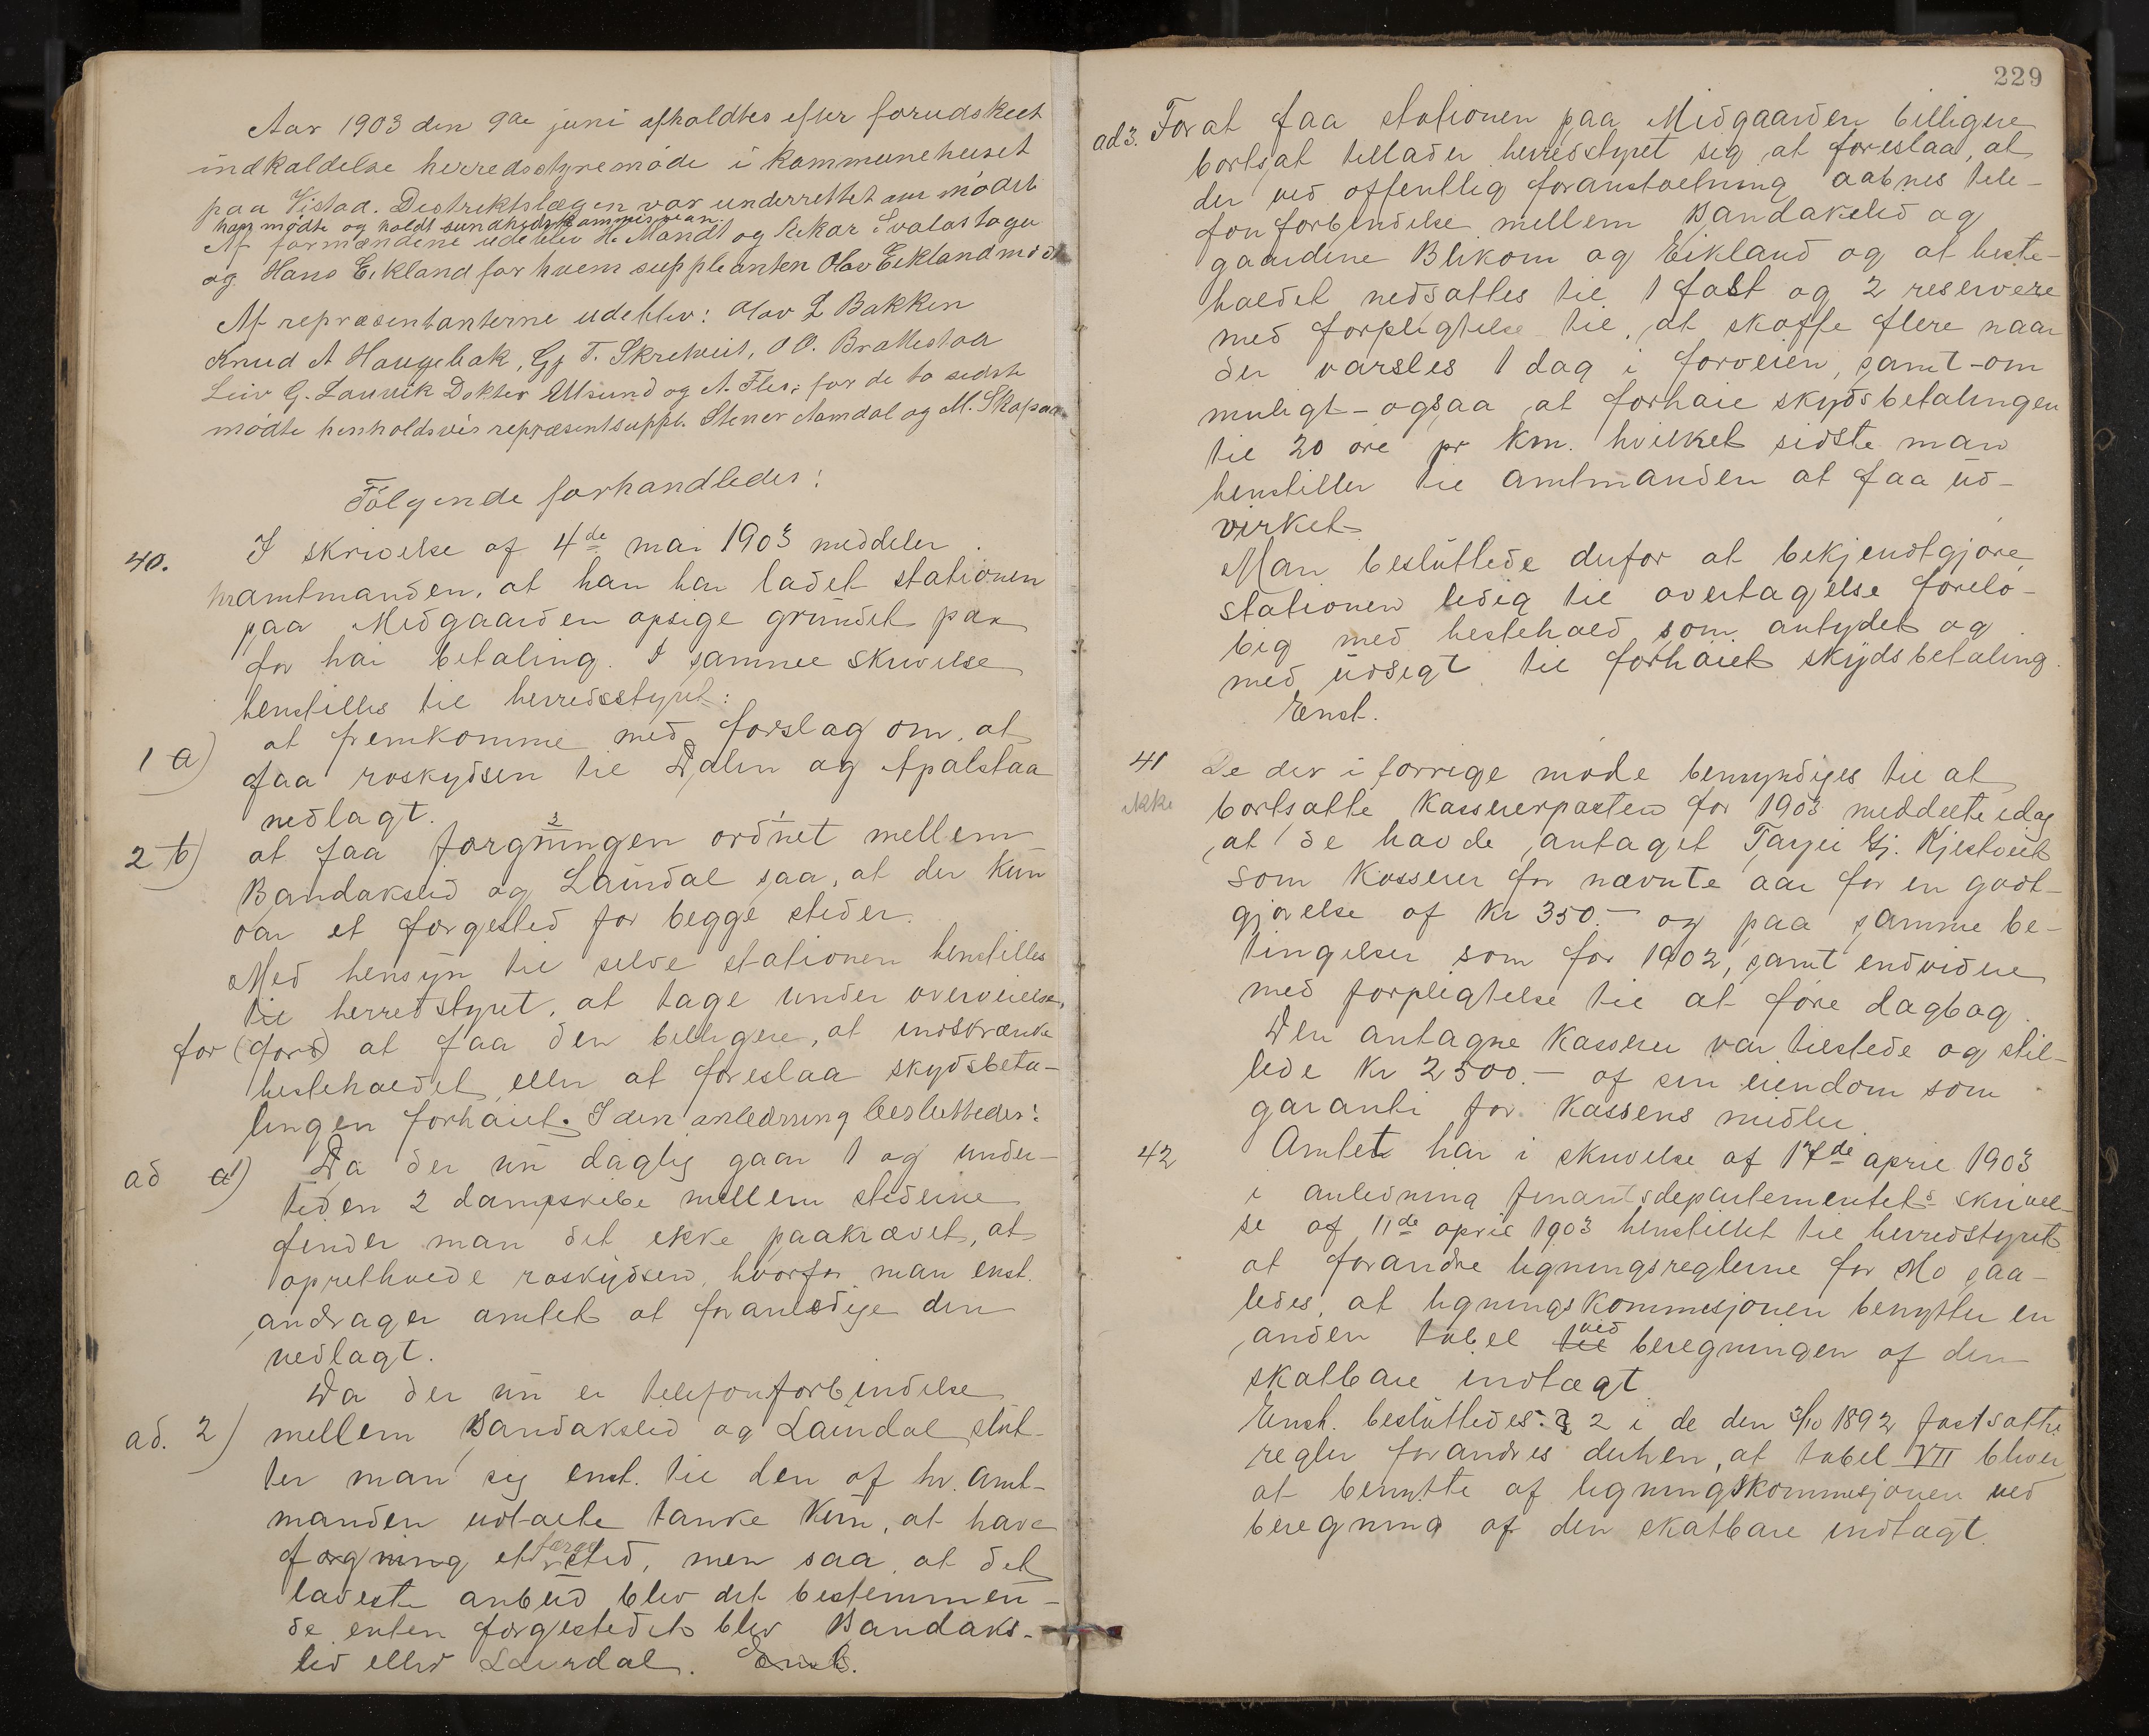 Aar 1903 den 9de juni afholdtes efter forudskeet
indkaldelse herredsstyremøde i kommunehuset
paa Vistad. Destriktslægen var underrettet om mødet
han mødte og holdt sundhedskommisjon.
Af formændene udeblev H. Mandt og Svalastoga
og Hans Eikland for hvem suppleanten Olav Eikland mødte
Af repræsentanterne udeblev: Olav L Bakken
Knud A Haugebak, Gj T. Skretveit, O O. Brattestaa
Leiv G. Lauvik Dokter Ulsund og A. Flei; for de to sidste
mødte henholdsvis repræsentsuppl. Stener Aamdal og M. Skapaa
Følgende forhandledes:
40. I skrivelse af 4de mai 1903 meddeler
hr amtmanden, at han har ladet stationen
paa Midgaarden opsige grundet paa
for høi betaling. I samme skrivelse
henstilles til herredsstyret:
1 a) at fremkomme med forslag om, at
faa roskydsen til Dalen og Apalstaa
nedlagt.
2 b) at faa færgningen ordnet mellem
Bandakslid og Laurdal saa, at der kun
var et færgested for begge steder.
Med hensyn til selve stationen henstilles
til herredstyret, at tage under overveielse,
for (ford) at faa den billigere, at indskrænke
hesteholdet, eller at foreslaa skydsbeta-
lingen forhøiet. I den anledning besluttedes:
ad a) Da der nu daglig gaar 1 og under-
tiden 2 dampskibe mellem stederne
finder man det ikke paakrævet, at
opretholde roskydsen, hvorfor man enst.
andrager amtet at foranledige den
nedlagt.
Da der nu er telefonforbindelse
ad. 2) mellem Bandakslid og Laurdal slut-
ter man seg enst. til den af hr. amt-
manden udtalte tanke kun, at have
færgning et færgested, men saa, at det
laveste anbud blev det bestemmen-
de enten færgestedet blev Bandaks-
lid eller Laurdal. Enst.
229
ad 3. For at faa stationen paa Midgaarden billigere
bortsat tillader herredstyret sig at foreslaa, at
der ved offentlig foranstaltning aabnes tele-
fonforbindelse mellem Bandakslid og
gaardene Blikom og Eikland og at heste-
holdet nedsattes til 1 fast og 2 reservere
med forpligtelse til, at skaffe flere naar
der varsles 1 dag i forveien, samt - om
muligt - ogsaa at forhøie skydsbetalingen
til 20 øre pr km. hvilket sidste man
henstiller til amtmanden at faa ud-
virket.
Man besluttede derfor at bekjendtgjøre
stationen ledig til overtagelse forelø-
big med hestehold som antydet og
med udsigt til forhøiet skydsbetaling.
Enst.
41 De der i forrige møde bemyndiges til at
ikke bortsatte kassererposten for 1903 meddelte idag
at de havde antaget Tarjei Gj. Kjestveit
som kasserer for nævnte aar for en godt-
gjørelse af kr 350.- og paa samme be-
tingelser som for 1902, samt endvidere
med forpligtelse til at føre dagbog.
Den antagne kasserer var tilstede og stil-
lede kr 2500.- af sin eiendom som
garanti for kassens midler
42 Amtet har i skrivelse af 17de april 1903
i anledning finantsdepartementets skrivel-
se af 11de april 1903 henstillet til herredstyret
at forandre ligningsreglerne for Mo saa-
ledes, at ligningskommisjonen benytter en
anden tabel til ved beregningen af den
skatbare indtægt
Enst. besluttedes: § 2 i de den 3/10 1892 fastsatte
regler forandres derhen, at tabel VII bliver
at benytte af ligningskommisjonen ved
beregning af den skatbare indtægt.